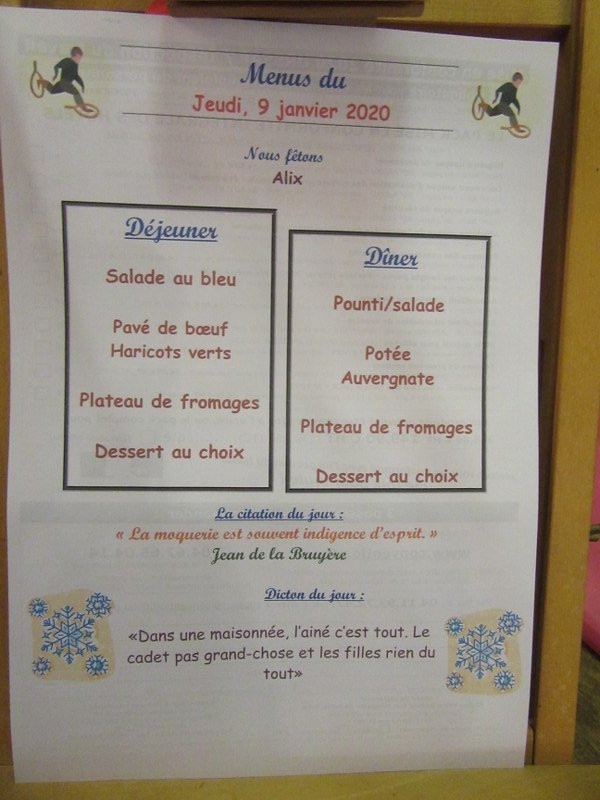 Menus du
Jeudi, 9 janvier 2020
Nous fêtons
Alix
Déjeuner
Salade au bleu
Pavé de bœuf
Haricots verts
Plateau de fromages
Dessert au choix
Dîner
Pounti/salade
Potée
Auvergnate
Plateau de fromages
Dessert au choix
La citation du jour :
« La moquerie est souvent indigence d'esprit. »
Jean de la Bruyère
Dicton du jour :
«Dans une maisonnée, l'ainé c'est tout. Le
cadet pas grand-chose et les filles rien du
tout»